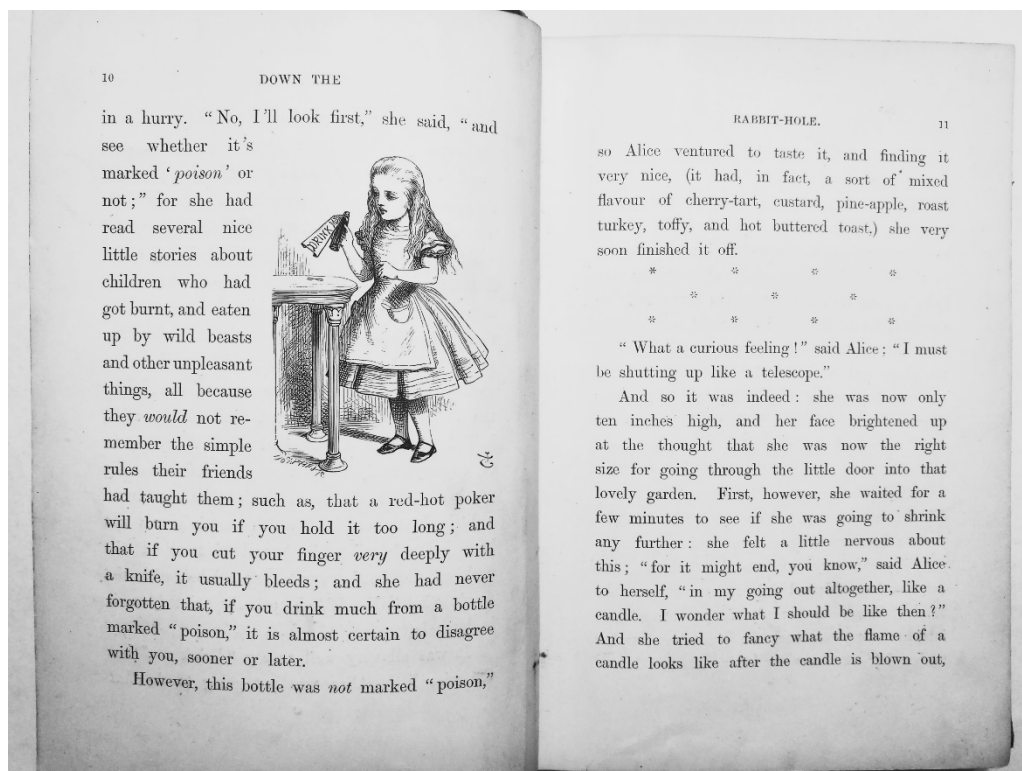 10
DOWN THE
in a hurry. “No, I’ll look first,” she said, “and
see whether it’s
marked ‘poison’ or
not;” for she had
read several nice
little stories about
children who had
got burnt, and eaten
up by wild beasts
and other unpleasant
things, all because
they would not re-
member the simple
rules their friends
had taught them; such as, that a red-hot poker
will burn you if you hold it too long; and
that if you cut your finger very deeply with
a knife, it usually bleeds; and she had never
forgotten that, if you drink much from a bottle
marked “poison,” it is almost certain to disagree
with you, sooner or later.
However, this bottle was not marked “poison,”
DRINK
RABBIT-HOLE.
11
so Alice ventured to taste it, and finding it
very nice, (it had, in fact, a sort of mixed
flavour of cherry-tart, custard, pine-apple, roast
turkey, toffy, and hot buttered toast,) she very
soon finished it off.
* * * *
* * *
* * * *
“What a curious feeling!” said Alice; “I must
be shutting up like a telescope.”
And so it was indeed: she was now only
ten inches high, and her face brightened up
at the thought that she was now the right
size for going through the little door into that
lovely garden. First, however, she waited for a
few minutes to see if she was going to shrink
any further: she felt a little nervous about
this; “for it might end, you know,” said Alice
to herself, “in my going out altogether, like a
candle. I wonder what I should be like then?”
And she tried to fancy what the flame of a
candle looks like after the candle is blown out,